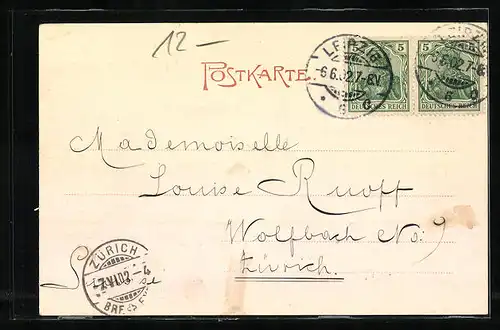 12 –
POSTKARTE.
5 5
DEUTSCHES REICH DEUTSCHES REICH
LEIPZIG
-6.6.02.7-8V.
6
Mademoiselle
Louise Ruoff
Wolfbach No:
Zürich.
ZÜRICH
-7.VI.02.-4